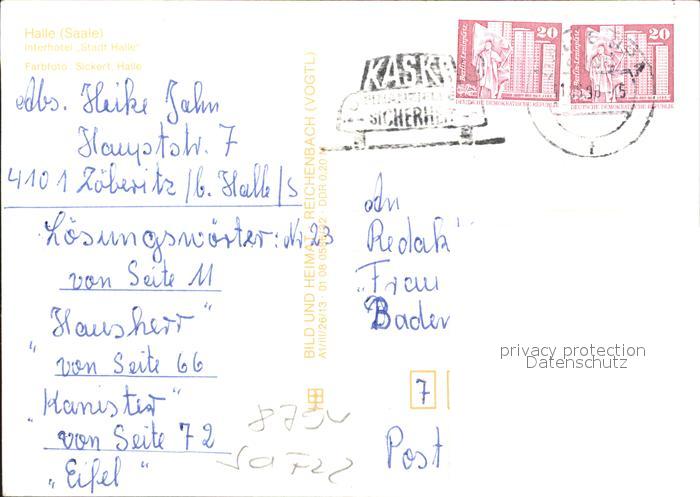 Halle (Saale)
Interhotel „Stadt Halle"
Farbfoto: Sickert, Halle
Abs. Heike Jahn
Hauptstr. 7
4101 Zöberitz /b. Halle/S
Lösungswörter: Nr 23
von Seite 11
„Hausherr"
von Seite 66
„Kanister"
von Seite 72
„Eifel"
BILD UND HEIMAT REICHENBACH (VOGTL)
A1/III/26/13 01 08 05
DDR 0,20
KASKO
SICHERHEIT
Berlin, Leninplatz
20
DEUTSCHE DEMOKRATISCHE REPUBLIK
Berlin, Leninplatz
20
An
Redak
„Frau
Bader
7
Post
privacy protection
Datenschutz